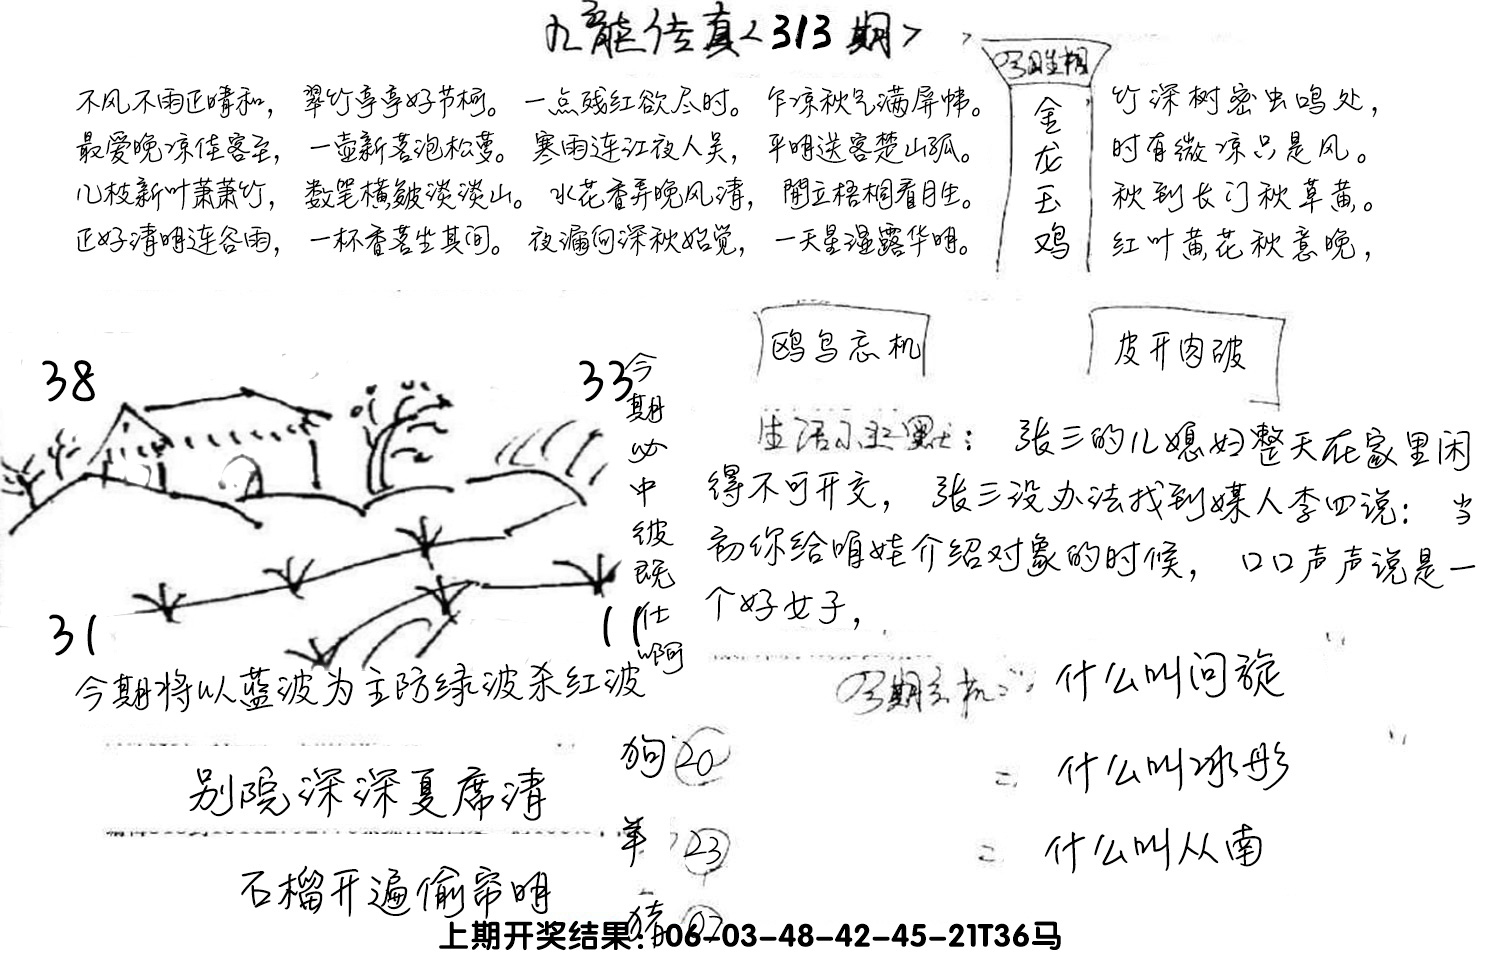 九龙传真<313期>
不风不雨正晴和，翠竹亭亭好节柯。一点残红欲尽时。乍凉秋气满屏帏。
最爱晚凉佳客至，一壶新茗泡松萝。寒雨连江夜人吴，平明送客楚山孤。
几枝新叶萧萧竹，数笔横皴淡淡山。水花香弄晚风清，閒立梧桐看月生。
正好清明连谷雨，一杯香茗坐其间。夜漏向深秋始觉，一天星湿露华明。
金龙玉鸡
竹深树密虫鸣处，
时有微凉只是风。
秋到长门秋草黄。
红叶黄花秋意晚，
38
33
31
11
今期必中彼既仕啊
今期将以蓝波为主防绿波杀红波
鸥鸟忘机
皮开肉破
张三的儿媳妇整天在家里闲
得不可开交，张三没办法找到媒人李四说：当
初你给咱娃介绍对象的时候，口口声声说是一
个好女子，
什么叫问旋
什么叫冰彤
什么叫从南
别院深深夏席清
石榴开遍偷帘明
狗 20
羊 23
猪
上期开奖结果：06-03-48-42-45-21T36马